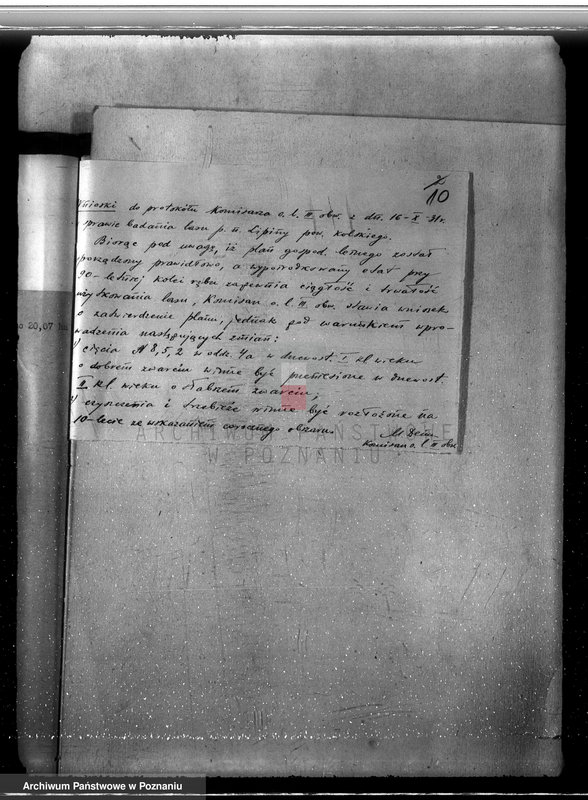 10
Wnioski do protokółu Komisarza o. l. III obw. z dn. 16-X-31r.
sprawie badania lasu p. n. Lipiny pow. kolskiego.
Biorąc pod uwagę, iż plan gospod. leśnego został
sporządzony prawidłowo, a wyporządkowany etat przy
90-letniej kolei rębu zapewnia ciągłość i trwałość
użytkowania lasu, Komisarz o. l. III obw. stawia wniosek
o zatwierdzenie planu, jednak pod warunkiem wpro-
wadzenia następujących zmian:
cięcia № 8, 5, 2 w odd. Ia w drzewost. I kl. wieku
o dobrem zwarciu winne być przeniesione w drzewost.
II kl. wieku o słabszem zwarciu;
czyszczenia i trzebieże winne być rozłożone na
10-lecie ze wskazaniem corocznego obszaru.
Komisarz o. l. III obw.
no 20,07 ha
ARCHIWUM PAŃSTWOWE
W POZNANIU
Archiwum Państwowe w Poznaniu